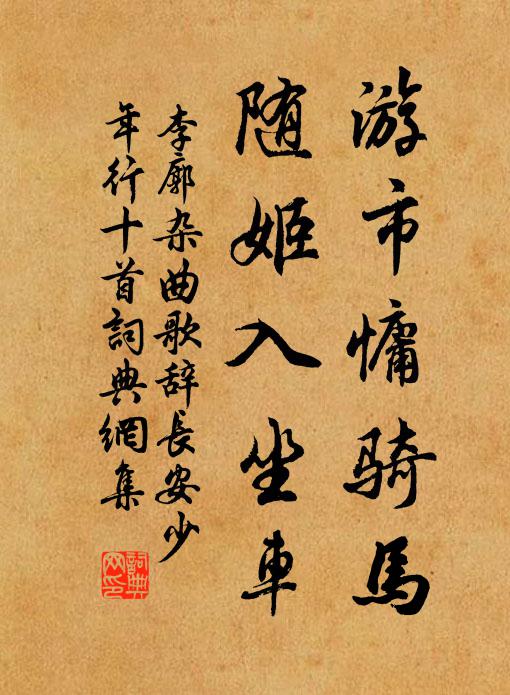 游市慵骑馬
随姬入坐車
李廓杂曲歌辞長安少
年行十首詞典網集